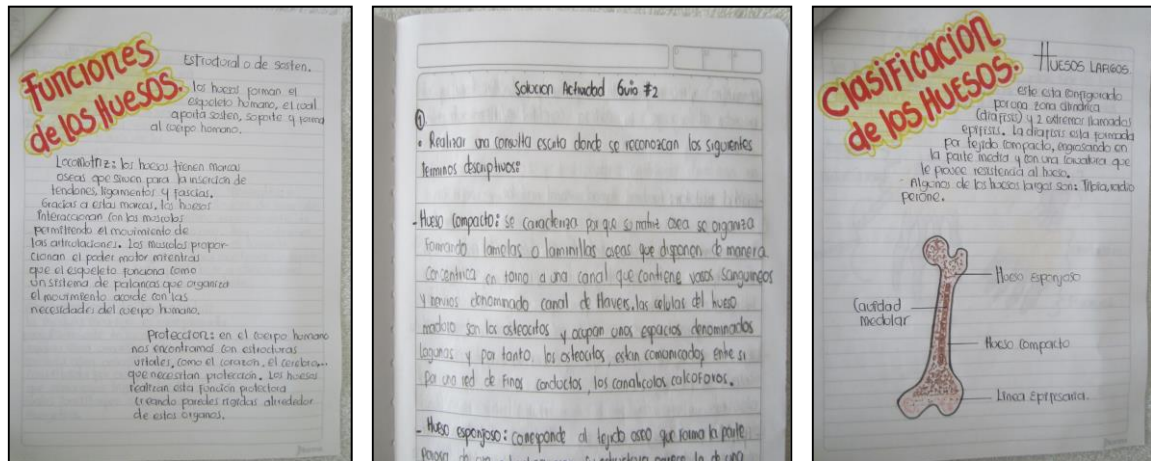 Funciones
de los Huesos.
Estructural o de sosten.
los huesos forman el
esqueleto humano, el cual
aporta sosten, soporte y forma
al cuerpo humano.
Locomotriz: los huesos tienen marcas
oseas que sirven para la inserción de
tendones, ligamentos y fascias.
Gracias a estas marcas, los huesos
interaccionan con los musculos
permitiendo el movimiento de
las articulaciones. Los musculos propor-
cionan el poder motor mientras
que el esqueleto funciona como
un sistema de palancas que organiza
el movimiento acorde con las
necesidades del cuerpo humano.
Protección: en el cuerpo humano
nos encontramos con estructuras
vitales, como el corazón, el cerebro...
que necesitan protección. Los huesos
realizan esta función protectora
creando paredes rigidas alrededor
de estos organos.
Solucion Actividad Guia #2
①
• Realizar una consulta escrita donde se reconozcan los siguientes
terminos descriptivos:
- Hueso compacto: se caracteriza por que su matriz osea se organiza
formando lamelas o laminillas oseas que disponen de manera
concentrica en torno a una canal que contiene vasos sanguineos
y nervios denominado canal de Havers. las celulas del hueso
maduro son los osteocitos y ocupan unos espacios denominados
lagunas y por tanto, los osteocitos, estan comunicados entre si
por una red de finos conductos, los canaliculos calcoforos.
- Hueso esponjoso: corresponde al tejido oseo que forma la parte
Clasificacion
de los HUESOS.
HUESOS LARGOS
este esta configurado
por una zona cilindrica
(diafisis) y 2 extremos llamados
epifisis. La diafisis esta formada
por tejido compacto, engrosando en
la parte media y con una curvatura que
le provee resistencia al hueso.
Algunos de los huesos largos son: Tibia, radio
perone.
Hueso esponjoso
Cavidad
medular
Hueso compacto
Linea Epifisaria.